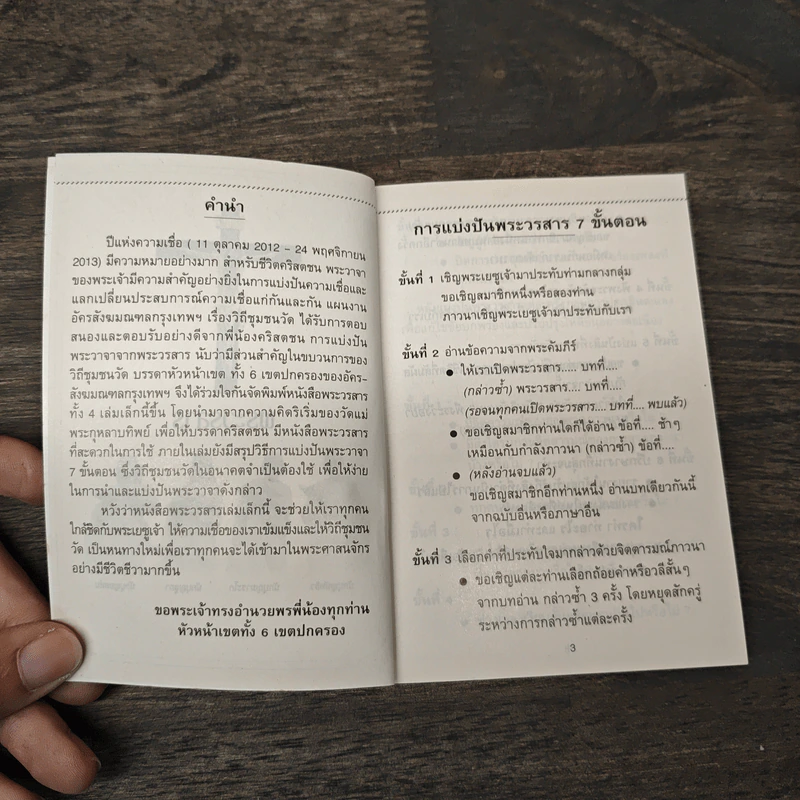 คำนำ
ปีแห่งความเชื่อ ( 11 ตุลาคม 2012 – 24 พฤศจิกายน
2013) มีความหมายอย่างมาก สำหรับชีวิตคริสตชน พระวาจา
ของพระเจ้ามีความสำคัญอย่างยิ่งในการแบ่งปันความเชื่อและ
แลกเปลี่ยนประสบการณ์ความเชื่อแก่กันและกัน แผนงาน
อัครสังฆมณฑลกรุงเทพฯ เรื่องวิถีชุมชนวัด ได้รับการตอบ
สนองและตอบรับอย่างดีจากพี่น้องคริสตชน การแบ่งปัน
พระวาจาจากพระวรสาร นับว่ามีส่วนสำคัญในขบวนการของ
วิถีชุมชนวัด บรรดาหัวหน้าเขต ทั้ง 6 เขตปกครองของอัคร-
สังฆมณฑลกรุงเทพฯ จึงได้ร่วมใจกันจัดพิมพ์หนังสือพระวรสาร
ทั้ง 4 เล่มเล็กนี้ขึ้น โดยนำมาจากความคิดริเริ่มของวัดแม่
พระกุหลาบทิพย์ เพื่อให้บรรดาคริสตชน มีหนังสือพระวรสาร
ที่สะดวกในการใช้ ภายในเล่มยังมีสรุปวิธีการแบ่งปันพระวาจา
7 ขั้นตอน ซึ่งวิถีชุมชนวัดในอนาคตจำเป็นต้องใช้ เพื่อให้ง่าย
ในการนำและแบ่งปันพระวาจาดังกล่าว
หวังว่าหนังสือพระวรสารเล่มเล็กนี้ จะช่วยให้เราทุกคน
ใกล้ชิดกับพระเยซูเจ้า ให้ความเชื่อของเราเข้มแข็งและให้วิถีชุมชน
วัด เป็นหนทางใหม่เพื่อเราทุกคนจะได้เข้ามาในพระศาสนจักร
อย่างมีชีวิตชีวามากขึ้น
ขอพระเจ้าทรงอำนวยพรพี่น้องทุกท่าน
หัวหน้าเขตทั้ง 6 เขตปกครอง
การแบ่งปันพระวรสาร 7 ขั้นตอน
ขั้นที่ 1 เชิญพระเยซูเจ้ามาประทับท่ามกลางกลุ่ม
ขอเชิญสมาชิกหนึ่งหรือสองท่าน
ภาวนาเชิญพระเยซูเจ้ามาประทับกับเรา
ขั้นที่ 2 อ่านข้อความจากพระคัมภีร์
● ให้เราเปิดพระวรสาร..... บทที่....
(กล่าวซ้ำ) พระวรสาร.... บทที่....
(รอจนทุกคนเปิดพระวรสาร.... บทที่.... พบแล้ว)
● ขอเชิญสมาชิกท่านใดก็ได้อ่าน ข้อที่.... ช้าๆ
เหมือนกับกำลังภาวนา (กล่าวซ้ำ) ข้อที่....
● (หลังอ่านจบแล้ว)
ขอเชิญสมาชิกอีกท่านหนึ่ง อ่านบทเดียวกันนี้
จากฉบับอื่นหรือภาษาอื่น
ขั้นที่ 3 เลือกคำที่ประทับใจมากล่าวด้วยจิตตารมณ์ภาวนา
● ขอเชิญแต่ละท่านเลือกถ้อยคำหรือวลีสั้นๆ
จากบทอ่าน กล่าวซ้ำ 3 ครั้ง โดยหยุดสักครู่
ระหว่างการกล่าวซ้ำแต่ละครั้ง
3